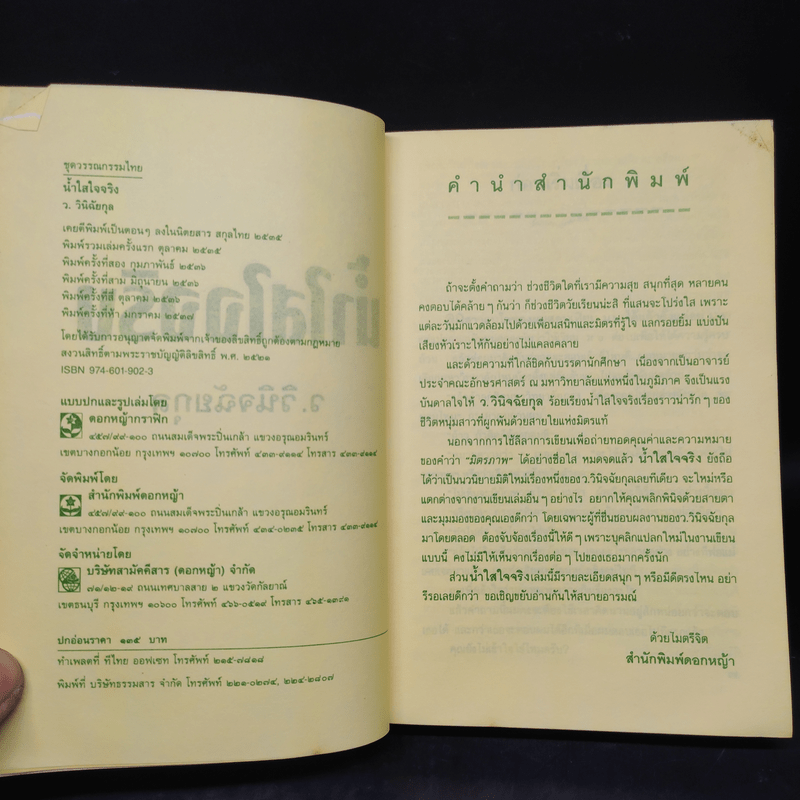 ชุดวรรณกรรมไทย
น้ำใสใจจริง
ว. วินิจฉัยกุล
เคยตีพิมพ์เป็นตอนๆ ลงในนิตยสาร สกุลไทย ๒๕๓๕
พิมพ์รวมเล่มครั้งแรก ตุลาคม ๒๕๓๕
พิมพ์ครั้งที่สอง กุมภาพันธ์ ๒๕๓๖
พิมพ์ครั้งที่สาม มิถุนายน ๒๕๓๖
พิมพ์ครั้งที่สี่ ตุลาคม ๒๕๓๖
พิมพ์ครั้งที่ห้า มกราคม ๒๕๓๗
โดยได้รับการอนุญาตจัดพิมพ์จากเจ้าของลิขสิทธิ์ถูกต้องตามกฎหมาย
สงวนสิทธิ์ตามพระราชบัญญัติลิขสิทธิ์ พ.ศ. ๒๕๒๑
ISBN 974-601-902-3
แบบปกและรูปเล่มโดย
ดอกหญ้ากราฟิก
๔๕๗/๙๙-๑๐๐ ถนนสมเด็จพระปิ่นเกล้า แขวงอรุณอมรินทร์
เขตบางกอกน้อย กรุงเทพฯ ๑๐๗๐๐ โทรศัพท์ ๔๓๓-๙๑๑๔ โทรสาร ๔๓๓-๙๑๑๔
จัดพิมพ์โดย
สำนักพิมพ์ดอกหญ้า
๔๕๗/๙๙-๑๐๐ ถนนสมเด็จพระปิ่นเกล้า แขวงอรุณอมรินทร์
เขตบางกอกน้อย กรุงเทพฯ ๑๐๗๐๐ โทรศัพท์ ๔๓๔-๐๒๓๕ โทรสาร ๔๓๓-๙๑๑๔
จัดจำหน่ายโดย
บริษัทสามัคคีสาร (ดอกหญ้า) จำกัด
๗๑/๑๒-๑๙ ถนนเทศบาลสาย ๒ แขวงวัดกัลยาณ์
เขตธนบุรี กรุงเทพฯ ๑๐๖๐๐ โทรศัพท์ ๔๖๖-๐๕๑๙ โทรสาร ๔๖๕-๑๓๘๑
ปกอ่อนราคา ๑๓๕ บาท
ทำเพลตที่ ทีไทย ออฟเซท โทรศัพท์ ๒๑๕-๗๘๑๘
พิมพ์ที่ บริษัทธรรมสาร จำกัด โทรศัพท์ ๒๒๑-๐๒๗๔, ๒๒๔-๒๘๐๗
คำนำสำนักพิมพ์
ถ้าจะตั้งคำถามว่า ช่วงชีวิตใดที่เรามีความสุข สนุกที่สุด หลายคน
คงตอบได้คล้ายๆ กันว่า ก็ช่วงชีวิตวัยเรียนน่ะสิ ที่แสนจะโปร่งใส เพราะ
แต่ละวันมักแวดล้อมไปด้วยเพื่อนสนิทและมิตรที่รู้ใจ แลกรอยยิ้ม แบ่งปัน
เสียงหัวเราะให้กันอย่างไม่แคลงคลาย
และด้วยความที่ใกล้ชิดกับบรรดานักศึกษา เนื่องจากเป็นอาจารย์
ประจำคณะอักษรศาสตร์ ณ มหาวิทยาลัยแห่งหนึ่งในภูมิภาค จึงเป็นแรง
บันดาลใจให้ ว.วินิจฉัยกุล ร้อยเรียงน้ำใสใจจริงเรื่องราวน่ารักๆ ของ
ชีวิตหนุ่มสาวที่ผูกพันด้วยสายใยแห่งมิตรแท้
นอกจากการใช้ลีลาการเขียนเพื่อถ่ายทอดคุณค่าและความหมาย
ของคำว่า "มิตรภาพ" ได้อย่างชื่อใส หมดจดแล้ว น้ำใสใจจริง ยังถือ
ได้ว่าเป็นนวนิยายมิติใหม่เรื่องหนึ่งของว.วินิจฉัยกุลเลยทีเดียว จะใหม่หรือ
แตกต่างจากงานเขียนเล่มอื่นๆ อย่างไร อยากให้คุณพลิกพินิจด้วยสายตา
และมุมมองของคุณเองดีกว่า โดยเฉพาะผู้ที่ชื่นชอบผลงานของว.วินิจฉัยกุล
มาโดยตลอด ต้องจับจ้องเรื่องนี้ให้ดีๆ เพราะบุคลิกแปลกใหม่ในงานเขียน
แบบนี้ คงไม่มีให้เห็นจากเรื่องต่อๆ ไปของเธอมากครั้งนัก
ส่วนน้ำใสใจจริงเล่มนี้มีรายละเอียดสนุกๆ หรือมีดีตรงไหน อย่า
รีรอเลยดีกว่า ขอเชิญขยับอ่านกันให้สบายอารมณ์
ด้วยไมตรีจิต
สำนักพิมพ์ดอกหญ้า